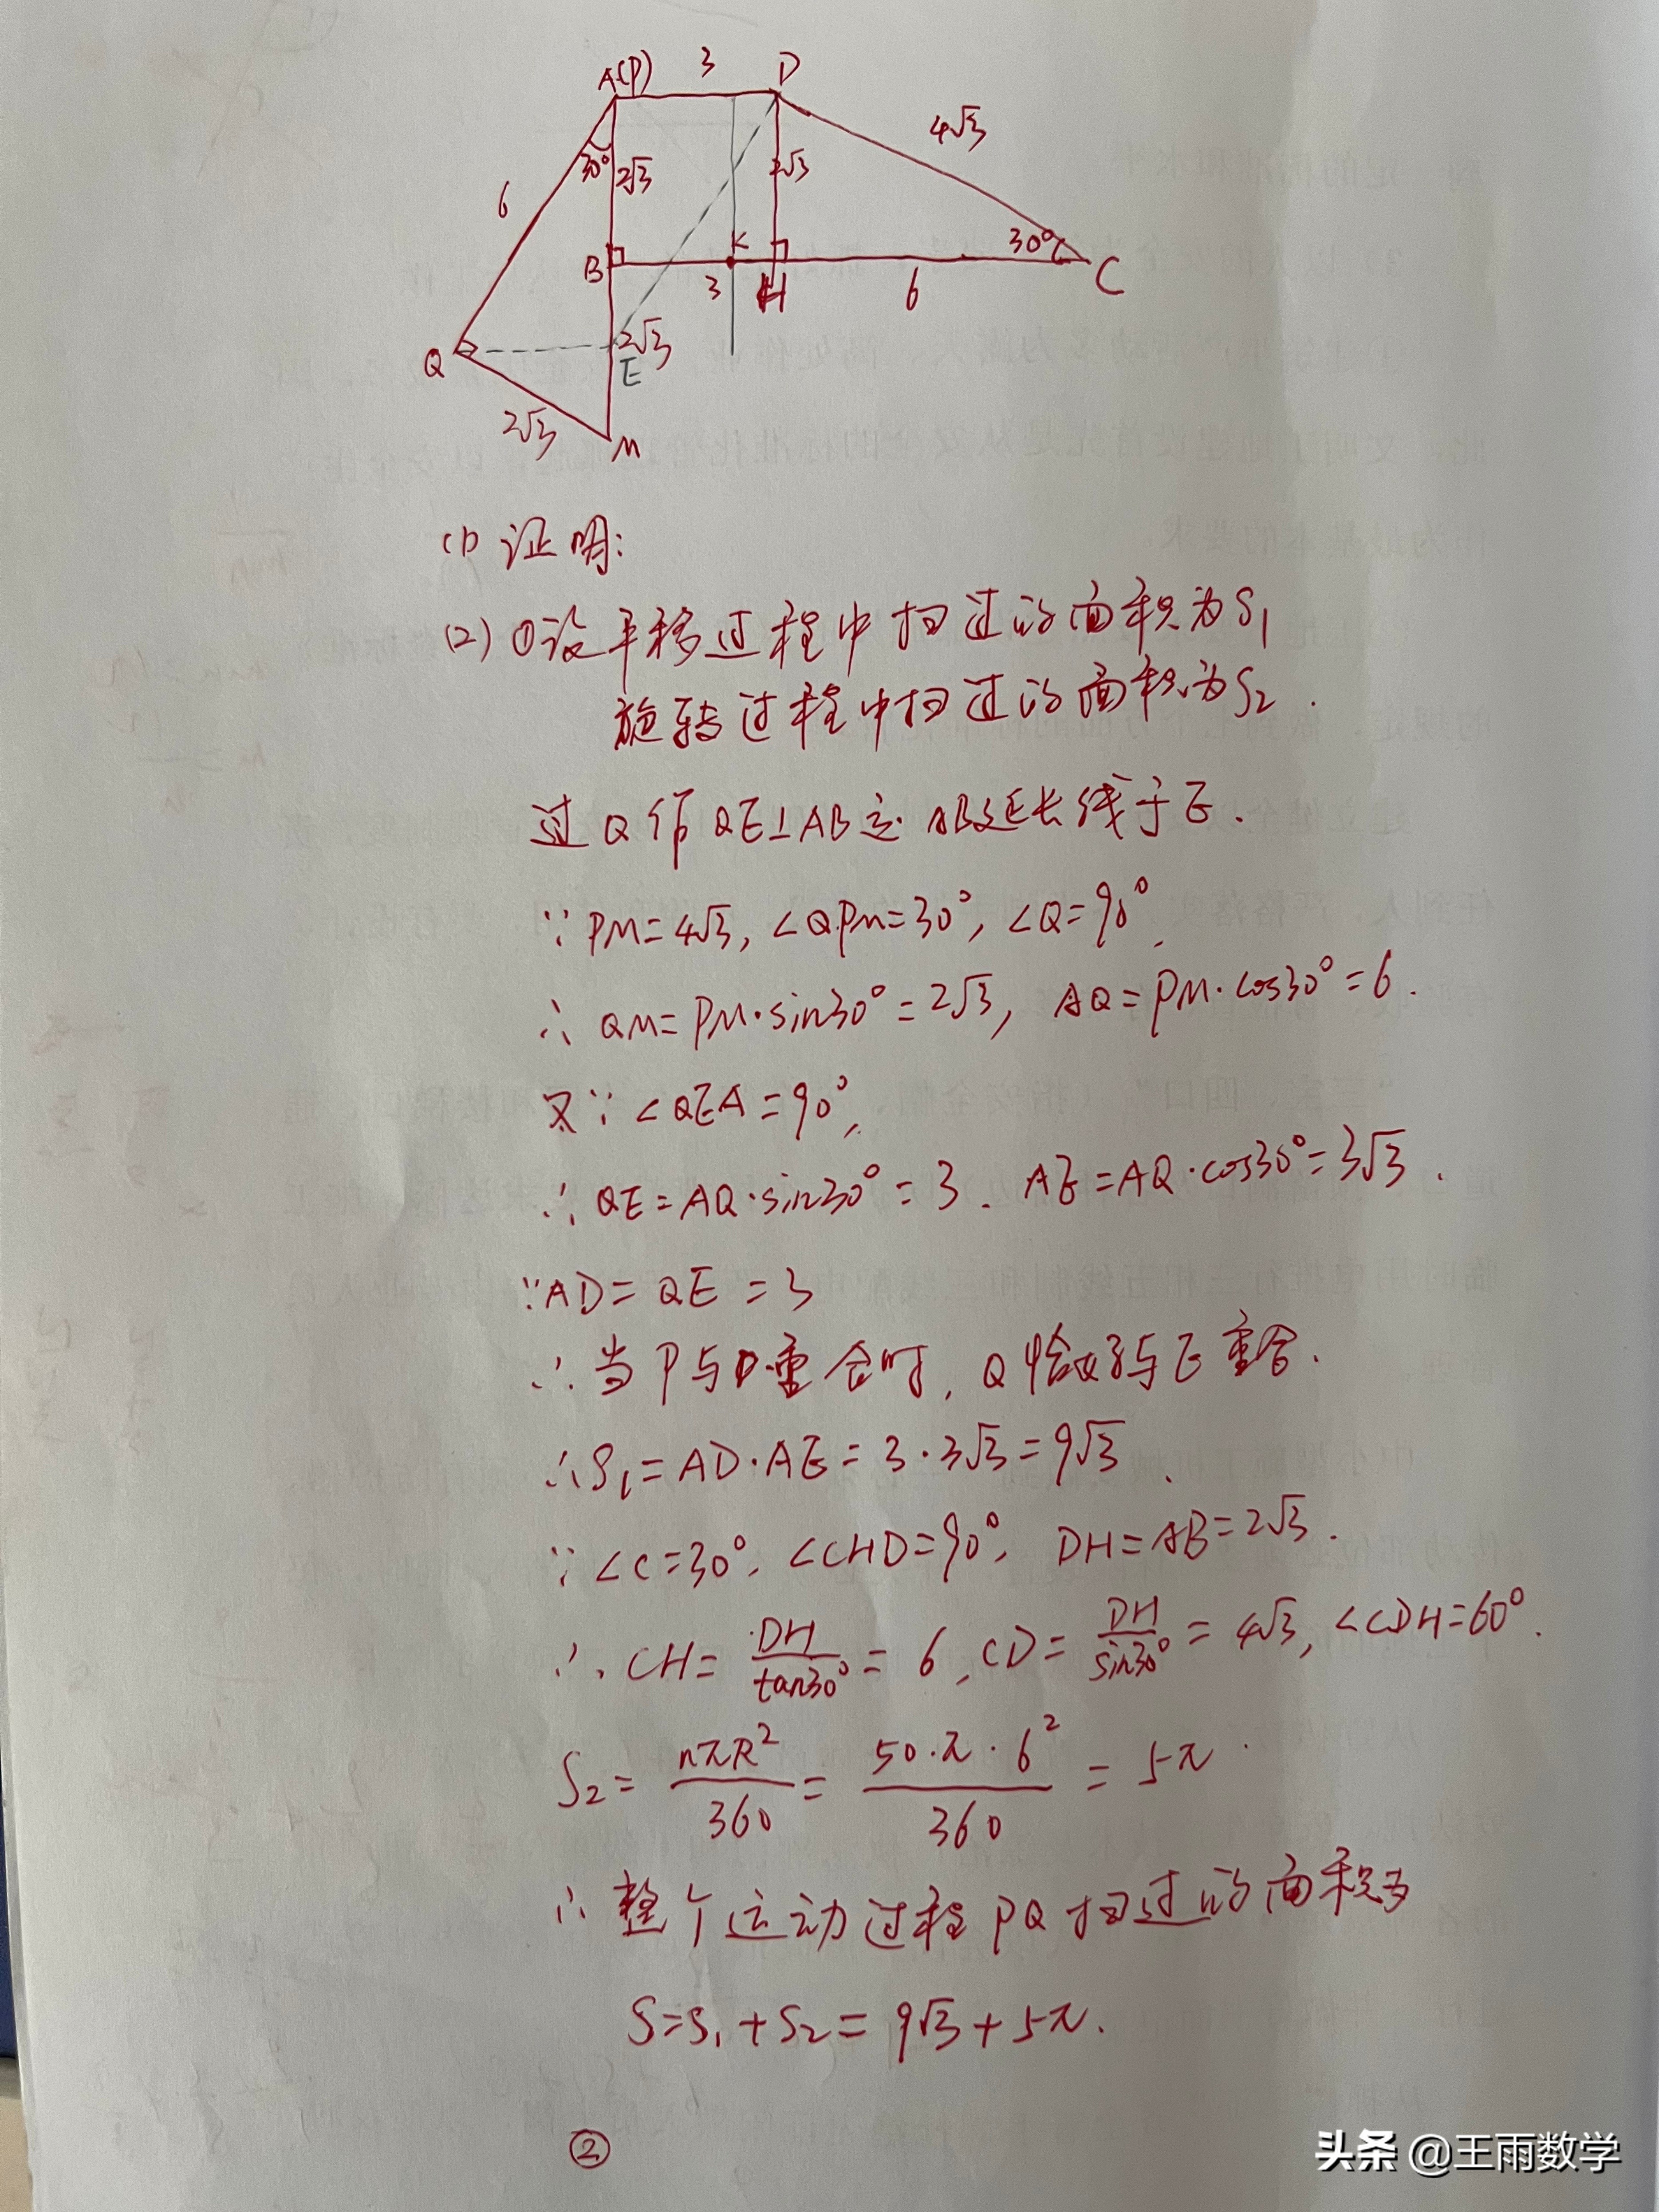 A(P) 3 D
4√3
30° 2√3 2√3
6
30°
B K
3 H 6 C
2√3
Q E
2√3
M
(1) 证明:
(2) ①设平移过程中扫过的面积为S₁
旋转过程中扫过的面积为S₂.
过Q作QE⊥AB交AB延长线于E.
∵PM=4√3, ∠QPM=30°, ∠Q=90°,
∴QM=PM·sin30°=2√3, AQ=PM·cos30°=6.
又∵∠QEA=90°,
∴QE=AQ·sin30°=3. AE=AQ·cos30°=3√3.
∵AD=QE=3
∴当P与D重合时, Q恰好与E重合.
∴S₁=AD·AE=3·3√3=9√3.
∵∠C=30°, ∠CHD=90°, DH=AB=2√3.
∴CH=DH/tan30°=6, CD=DH/sin30°=4√3, ∠CDH=60°.
S₂=nπR²/360=50·π·6²/360=5π.
∴整个运动过程PQ扫过的面积为
S=S₁+S₂=9√3+5π.
②
头条 @王雨数学